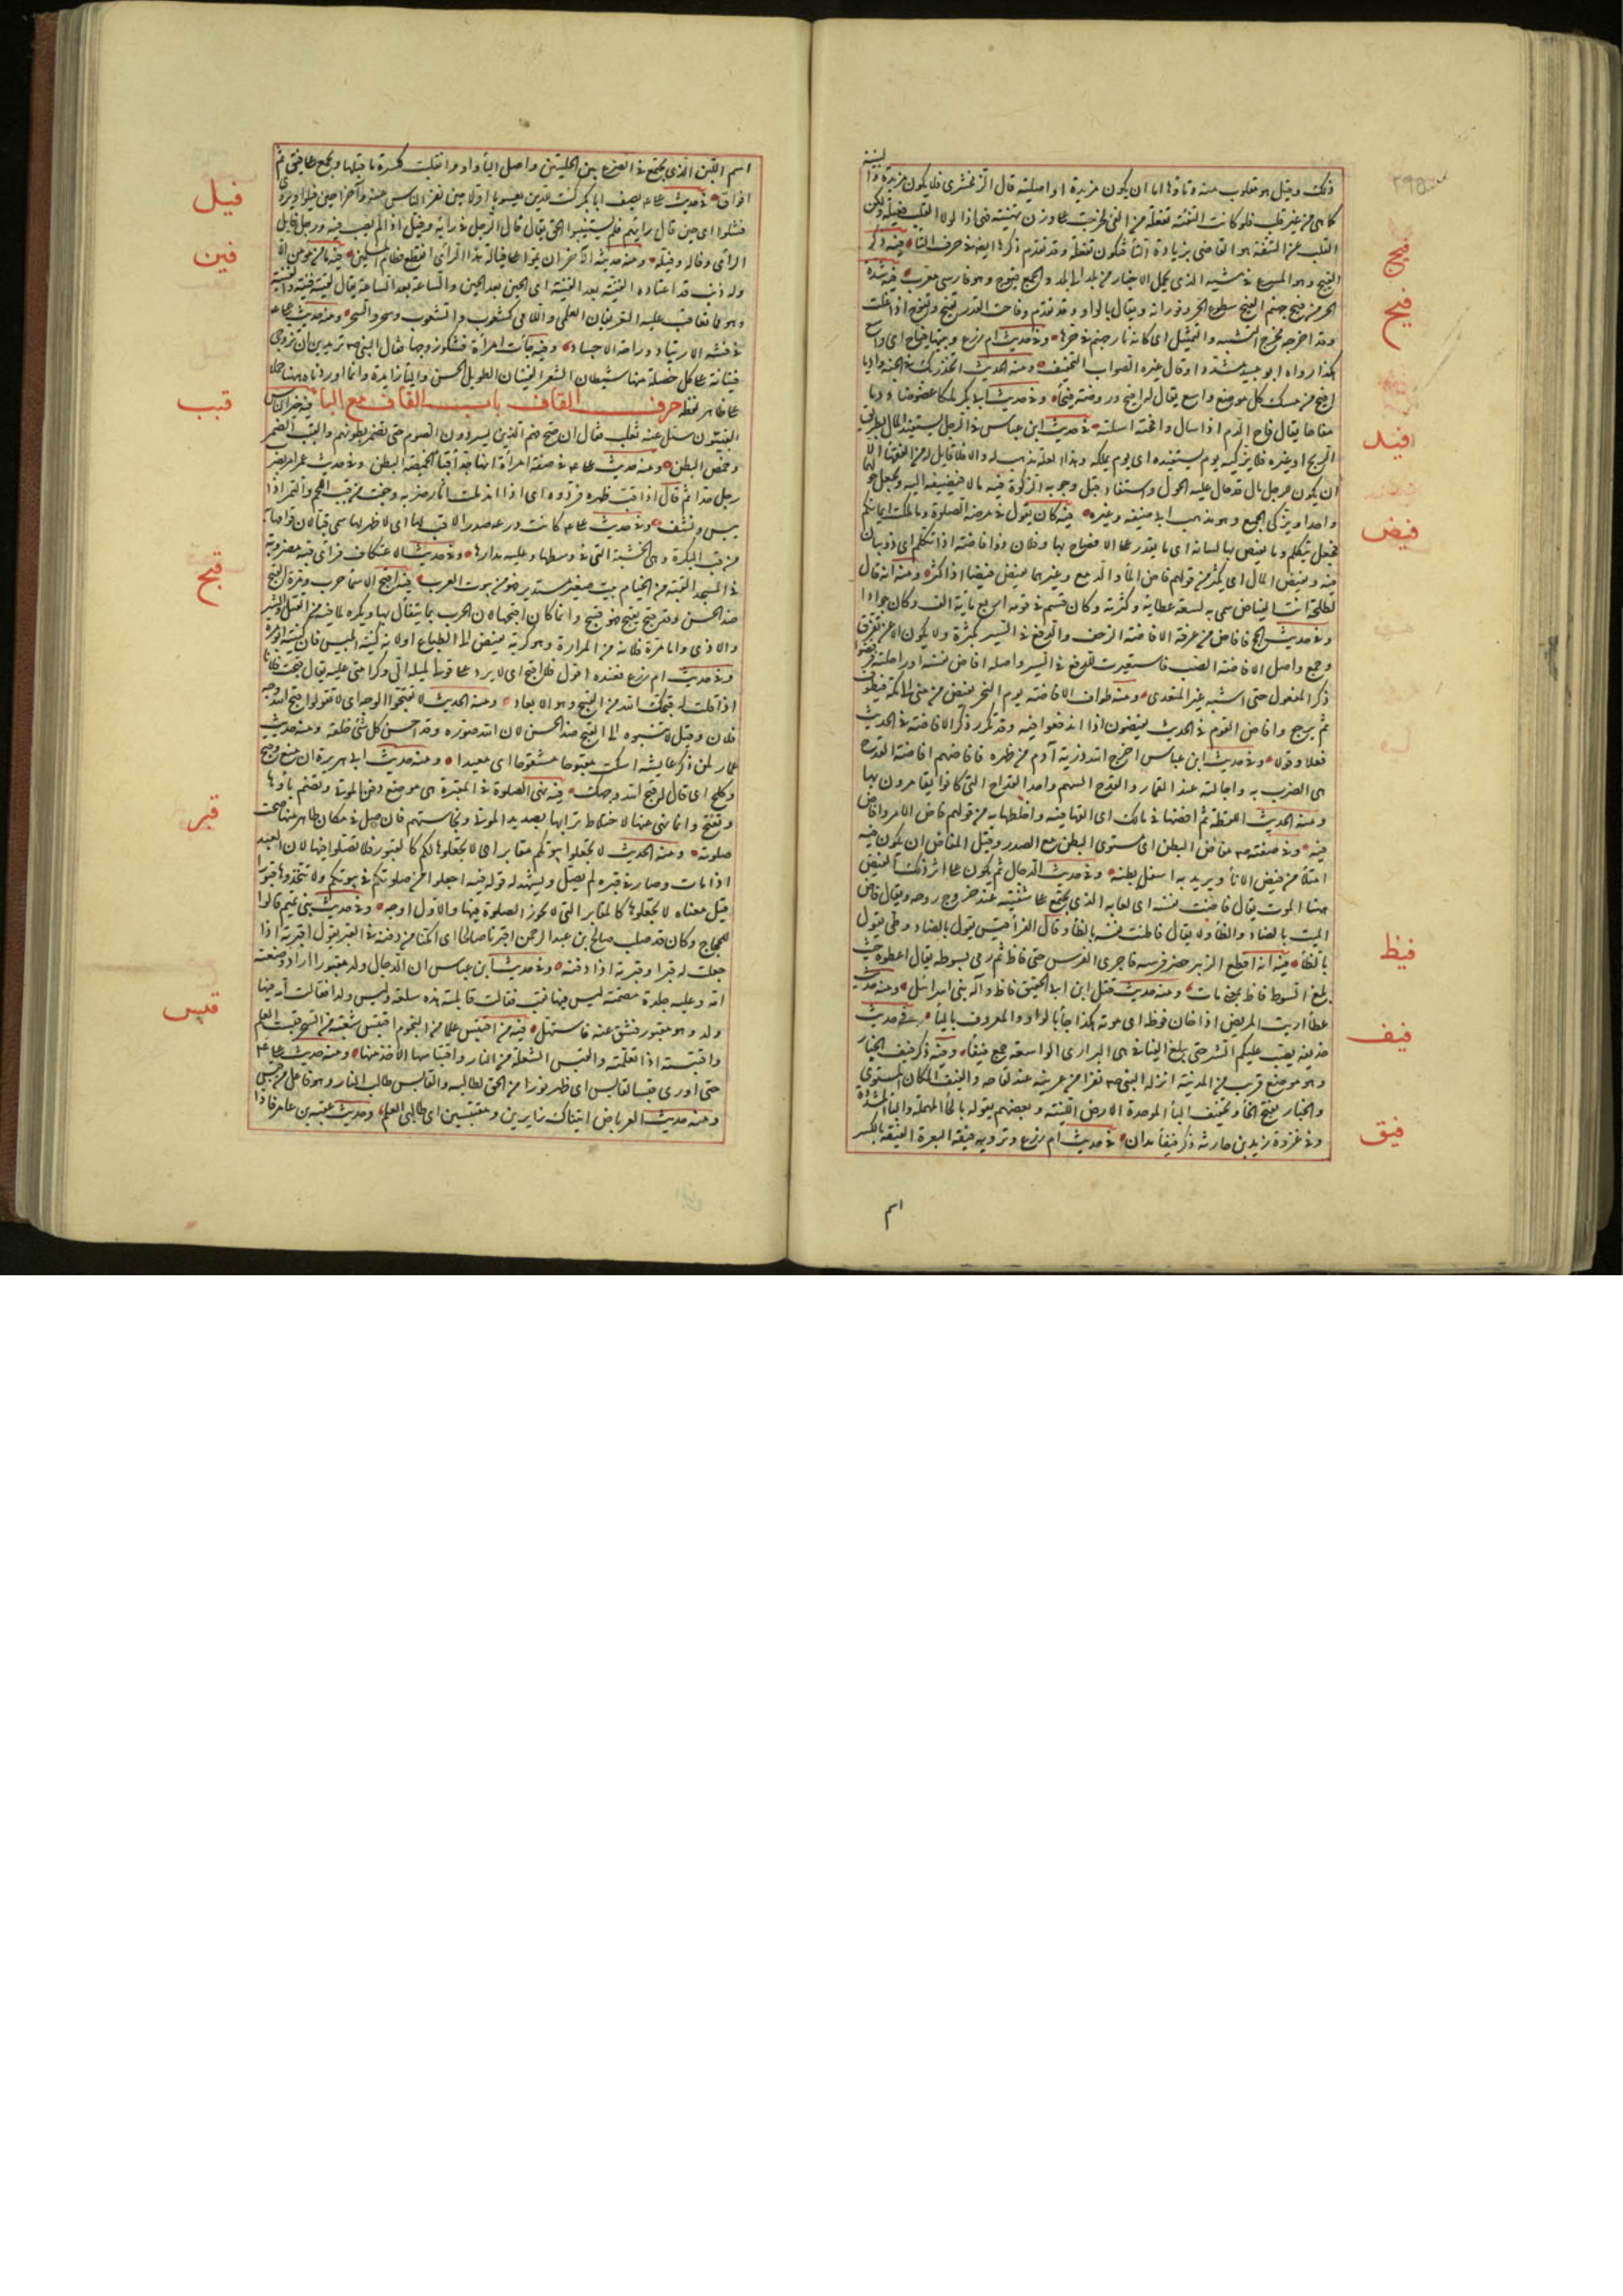 ذلك وقيل هو مقلوب منه وتاؤها اما ان يكون مزيدة او اصلية قال الزمخشرى فلا يكون مزيدة والبنية
كما هى من غير قلب فلو كانت التفئة تفعلة من الفئ لخرجت على وزن تهنئة فهى اذا لولا القلب فعيلة ولكن
القلب عن التئفة هو القاضى بزيادة التاء فتكون تفعلة وقد تقدم ذكرها ايضا فى حرف التاء فيه ذكر
فيج
الفيج وهو المسرع فى مشيه الذى يحمل الاخبار من بلد الى بلد والجمع فيوج وهو فارسى معرب فيه شدة
فيح
الحر من فيح جهنم الفيح سطوع الحر وفورانه ويقال بالواو وقد تقدم وفاحت القدر تفيح وتفوح اذا غلت
وقد اخرجه مخرج التشبيه والتمثيل اى كانه نار جهنم فى حرها وفى حديث ام زرع وبيتها فياح اى واسع
هكذا رواه ابو عبيد مشددا وقال غيره الصواب التخفيف ومنه الحديث اتخذ ربك فى الجنة واديا
افيح من مسك كل موضع واسع يقال له افيح وروضة فيحاء وفى حديث ابى بكر ملكا عضوضا ودما
مفاحا يقال فاح الدم اذا سال وافحته اسلته فى حديث ابن عباس فى الرجل يستفيد المال بطريق
افيد
الربح او غيره قال يزكيه يوم يستفيده اى يوم يملكه وهذا لعله مذهب له والا فلا قايل به من الفقهاء الا
ان يكون للرجل مال قد حال عليه الحول واستفاد قبل وجوبه الزكوة فيه مالا فيضيفه اليه ويجعل حولهما
واحدا ويزكى الجميع وهو مذهب ابى حنيفة وغيره فيه كان يقول فى مرضه الصلوة وما ملكت ايمانكم
فيض
فجعل يتكلم وما يفيض بها لسانه اى ما يقدر على الافصاح بها وفلان ذو افاضة اذا تكلم اى ذو بيان
فيه ويفيض المال اى يكثر من قولهم فاض الماء والدمع وغيرهما يفيض فيضا اذا كثر ومنه انه قال
لطلحة انت الفياض سمى به لسعة عطايه وكثرته وكان قسم فى قومه اربع ماية الف وكان جوادا
وفى حديث الحج فافاض من عرفة الافاضة الزحف والدفع فى السير بكثرة ولا يكون الا عن تفرق
وجمع واصل الافاضة الصب فاستعيرت للدفع فى السير واصله افاض نفسه او راحلته فرفضوا
ذكر المفعول حتى اشبه غير المتعدى ومنه طواف الافاضة يوم النحر يفيض من منى الى مكة فيطوف
ثم يرجع وافاض القوم فى الحديث يفيضون اذا اندفعوا فيه وقد تكرر ذكر الافاضة فى الحديث
فعلا وقولا وفى حديث ابن عباس اخرج الله ذرية آدم من ظهره فافاضهم افاضة القدح
هى الضرب به واجالته عند القمار والقدح السهم واحد القداح التى كانوا يقامرون بها
ومنه الحديث اللقطة ثم افضها فى مالك اى القها فيه واخلطها به من قولهم فاض الامر وافاض
فيه وفى صفته ص مفاض البطن اى مستوى البطن مع الصدر وقيل المفاض ان يكون فيه
امتلاء من فيض الاناء ويريد به اسفل بطنه وفى حديث الدجال ثم يكون على اثر ذلك الفيض
ههنا الموت يقال فاضت نفسه اى لعابه الذى يجتمع على شفتيه عند خروج روحه ويقال فاض
الميت بالضاد والظاء ولا يقال فاظت نفسه بالظاء وقال الفراء قيس يقول بالضاد وطى يقول
بالظاء فيه انه اقطع الزبير حضر فرسه فاجرى الفرس حتى فاظ ثم رمى بسوطه يقال اعطوه حيث
فيظ
بلغ السوط فاظ بمعنى مات ومنه حديث قتل ابن ابى الحقيق فاظ واله بنى اسرائيل ومنه حديث
عطاء ارايت المريض اذا حان فوظه اى موته هكذا جاء بالواو والمعروف بالياء فى حديث
فيف
حذيفة يصب عليكم الشر حتى يبلغ الفيافى هى البرارى الواسعة جمع فيفاء وفيه ذكر فيف الخبار
وهو موضع قريب من المدينة انزله النبى ص نفرا من عرينة عند لقاحه والفيف المكان المستوى
والخبار بفتح الخاء وتخفيف الباء الموحدة الارض اللينة وبعضهم يقوله بالحاء المهملة والباء المشددة
وفى غزوة زيد بن حارثة ذكر فيفاء مدان فى حديث ام زرع وترويه فيقة اليعرة الفيقة بالكسر
فيق
اسم
اسم اللبن الذى يجتمع فى الضرع بين الحلبتين واصل الياء واو انقلبت لكسرة ما قبلها ويجمع على فيق ثم
افواق فى حديث على يصف ابا بكر كنت للدين يعسوبا اولا حين نفر الناس عنه وآخرا حين فيلوا ويروى
فيل
فشلوا اى حين قال رايهم فلم يستبينوا الحق يقال قال الرجل فى رايه وفيل اذا لم يصب فيه ورجل فايل
الراى وفاله وفيله ومنه حديثه الاخر ان تموا على فيالة هذا الراى انقطع نظام المسلمين فيه ما من مؤمن الا
فين
وله ذنب قد اعتاده الفينة بعد الفينة اى الحين بعد الحين والساعة بعد الساعة يقال لقيته فينة والفينة
وهو مما تعاقب عليه التعريفان العلمى واللامى كشعوب والشعوب وسحر والسحر ومنه حديث على
فى فينة الارتياد وراحة الاجساد وفيه جاءت امراة تشكو زوجها فقال النبى ص تريدين ان تزوجى
فينانة على كل خصلة منها شيطان الشعر الفينان الطويل الحسن والياء زايدة وانما اوردناه ههنا حملا
على ظاهر لفظه حرف القاف باب القاف مع الباء فيه خير الناس
قبب
القبيون سئل عنه ثعلب فقال ان صح فهم الذين يسردون الصوم حتى تضمر بطونهم والقبب الضمر
وخمص البطن ومنه حديث على فى صفة امراة انها جداء قباء الخميصة البطن وفى حديث عمر امر بضرب
رجل حدا ثم قال اذا قب ظهره فردوه اى اذا اندملت اثار ضربه وجفت من قب اللحم والتمر اذا
يبس ونشف وفى حديث على كانت درعه صدرا لا قب لها اى لا ظهر لها سمى قبا لان قوامها
من قب البكرة وهى الخشبة التى فى وسطها وعليه مدارها وفى حديث الاعتكاف فراى قبة مضروبة
فى المسجد القبة من الخيام بيت صغير مستدير وهو من بيوت العرب فيه اقبح الاسماء حرب ومرة القبح
قبح
ضد الحسن وقد قبح يقبح فهو قبيح وانما كان اقبحها لان الحرب مما يتفأل بها ويكره لما فيه من القتل والشر
والاذى واما مرة فلانه من المرارة وهو كريه بغيض الى الطباع او لانه كنية ابليس فان كنيته ابو مرة
وفى حديث ام زرع فعنده اقول فلا اقبح اى لا يرد على قولى لميله الى وكرامتى عليه يقال قبحت فلانا
اذا قلت له قبحك الله من القبح وهو الابعاد ومنه الحديث لا تقبحوا الوجه اى لا تقولوا قبح الله وجه
فلان وقيل لا تنسبوه الى القبح ضد الحسن لان الله صوره وقد احسن كل شئ خلقه ومنه حديث
عمار لمن ذكر عايشة اسكت مقبوحا مشقوحا اى مبعدا ومنه حديث ابى هريرة ان منع قبح
وكلح اى قال له قبح الله وجهك فيه نهى الصلوة فى المقبرة هى موضع دفن الموتى وتضم باؤها
قبر
وتفتح وانما نهى عنها لاختلاط ترابها بصديد الموتى ونجاستهم فان صلى فى مكان طاهر منها صحت
صلوته ومنه الحديث لا تجعلوا بيوتكم مقابر اى لا تجعلوها لكم كالقبور فلا تصلوا فيها لان العبد
اذا مات وصار فى قبره لم يصل ويشهد له قوله فيه اجعلوا من صلوتكم فى بيوتكم ولا تتخذوها قبورا
قيل معناه لا تجعلوها كالمقابر التى لا تجوز الصلوة فيها والاول اوجه وفى حديث بنى تميم قالوا
للحجاج وكان قد صلب صالح بن عبد الرحمن اقبرنا صالحا اى امكنا من دفنه فى القبر يقول اقبرته اذا
جعلت له قبرا وقبرته اذا دفنته وفى حديث ابن عباس ان الدجال ولد مقبورا اراد وضعته
امه وعليه جلدة مصمتة ليس فيها نقب فقالت قابلته هذه سلعة وليس ولدا فقالت امه فيها
ولد وهو مقبور فشق عنه فاستهل فيه من اقتبس علما من النجوم اقتبس شعبة من السحر قبست العلم
قبس
واقتبسته اذا تعلمته والقبس الشعلة من النار واقتباسها الاخذ منها ومنه حديث على
حتى اورى قبسا لقابس اى ظهر نورا من الحق لطالبه والقابس طالب النار وهو فاعل من قبس
ومنه حديث العرباض اتيناك زايرين ومقتبسين اى طالبى العلم وحديث عقبة بن عامر فاذا